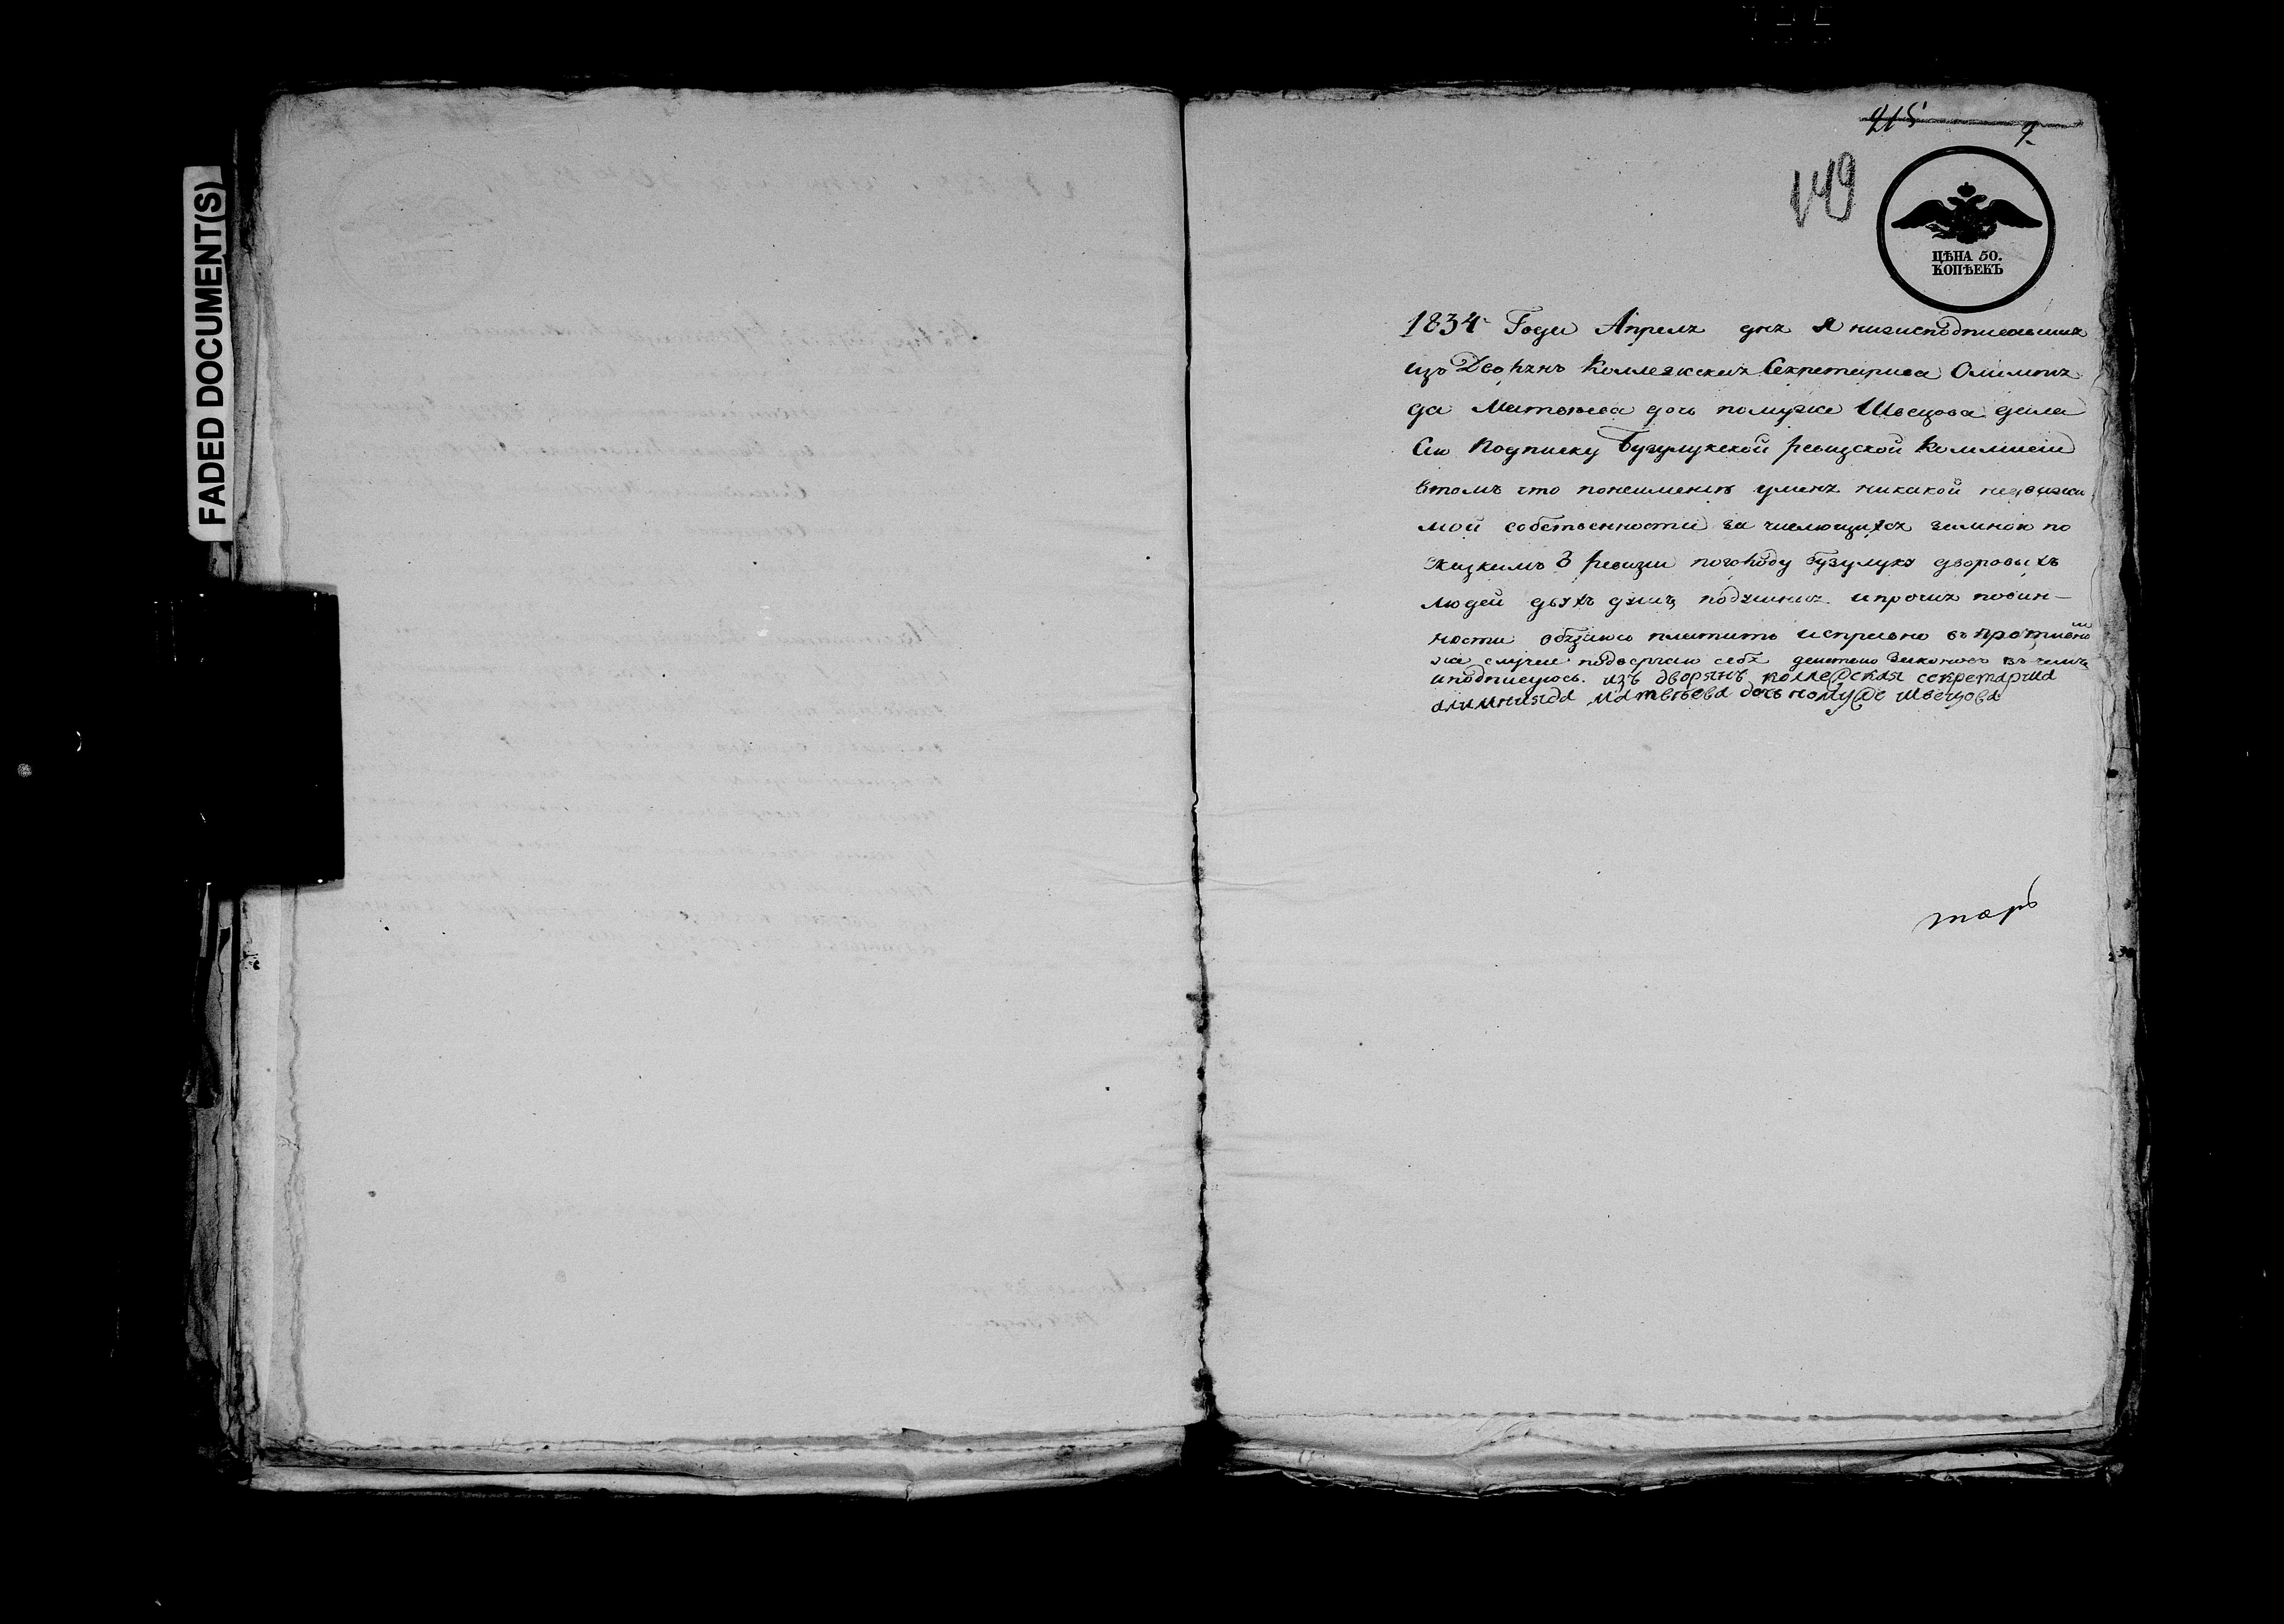 FADED DOCUMENT(S)
215 9
149
ЦѢНА 50.
КОПѢЕКЪ
1834 Года Апреля дня я нижеподписавшия
изъ Дворянъ Коллежская Секретарша Олимпия
да Матвѣева дочь помужѣ Швецова дала
Сию Подписку Бузулукской ревизской Коммисіи
втомъ что понеименію уменя никакой недвижи
мой собственности за числющихся замною по
сказкамъ 8 ревизіи погороду Бузулуку дворовыхъ
людей двухъ душъ подушныя и прочия повин—
ности обязаюсь платить исправно въ противно
же случае подвергаю себя действию законовъ въ чемъ
иподписуюсь. изъ дворянъ колежская секретарша
алимпияда матвѣева дочь помуже швецова
тарь